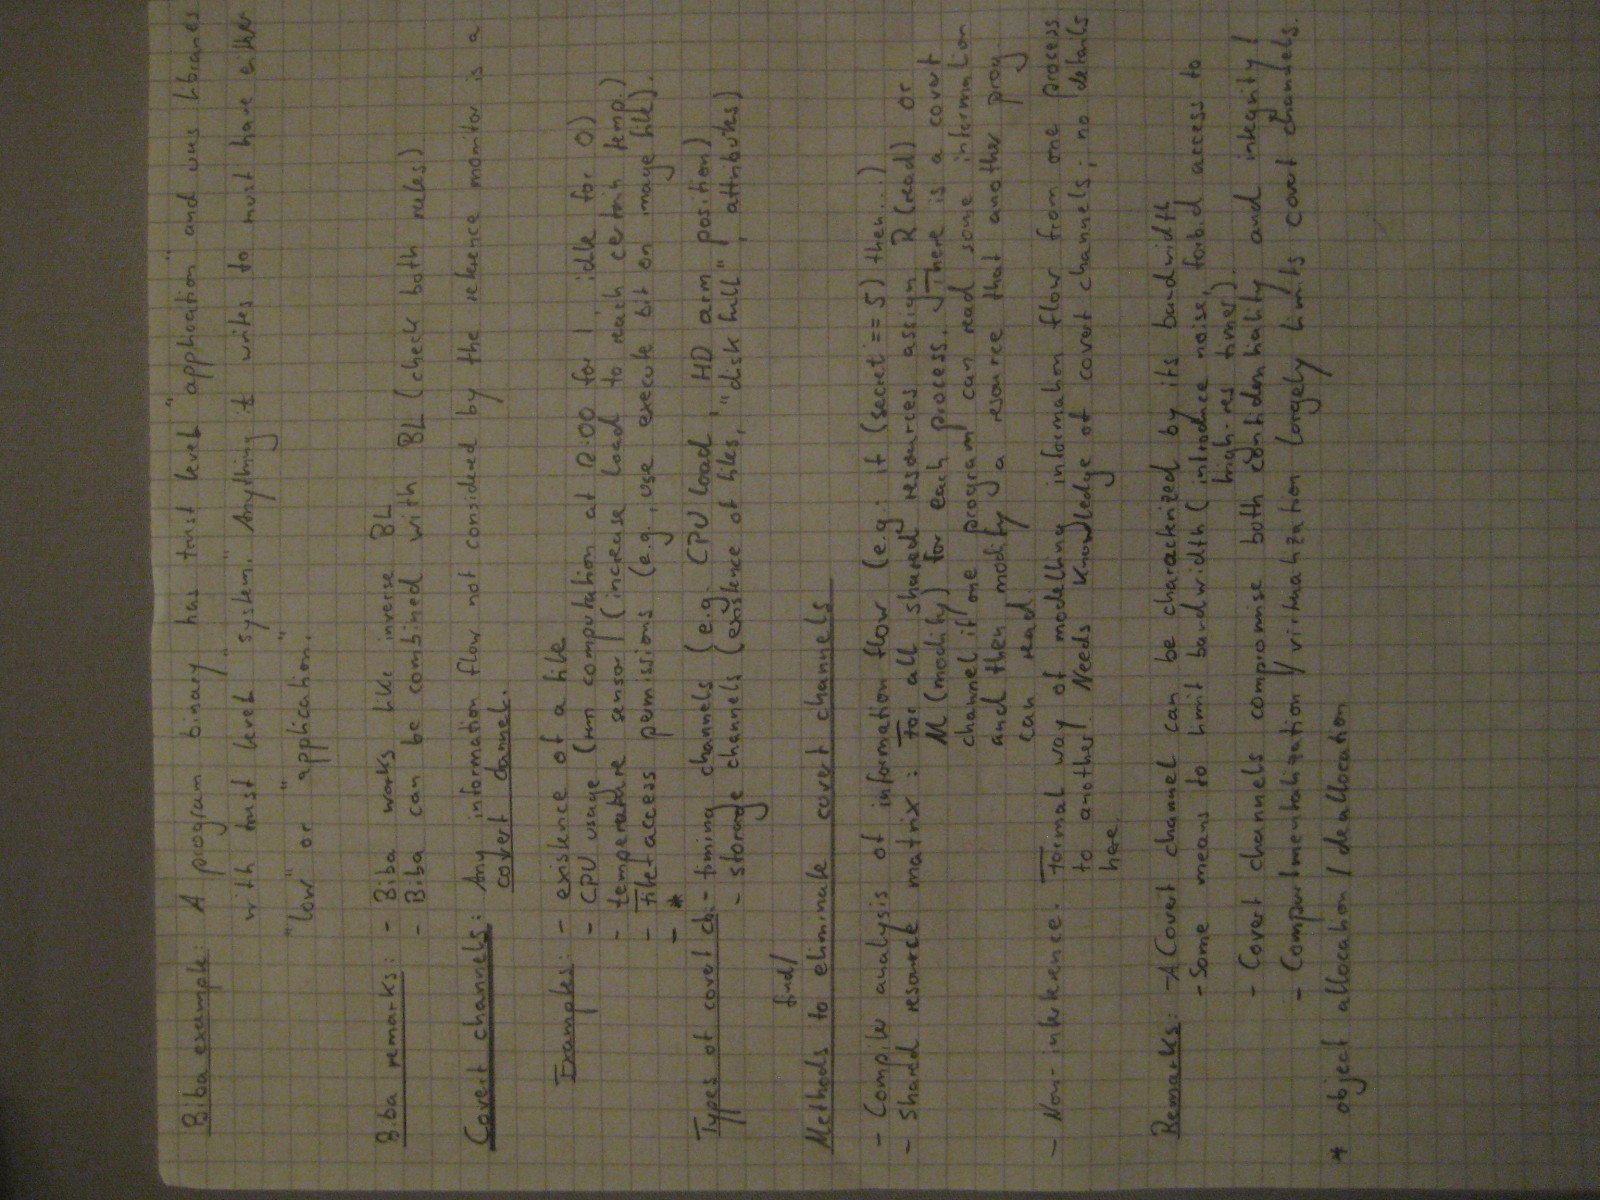 Biba example: A program binary has trust level "application" and uses libraries
with trust level "system". Anything it writes to must have either
"low" or "application."
Biba remarks: - Biba works like inverse BL
- Biba can be combined with BL (check both rules)
Covert channels: Any information flow not considered by the reference monitor is a
covert channel.
Examples: - existence of a file
- CPU usage (run computation at 12:00 for 1, idle for 0)
- temperature sensor (increase load to reach certain temp.)
- File access permissions (e.g., use execute bit on image file).
- *
Types of covert ch. - timing channels (e.g. CPU load, HD arm position)
- storage channels (existence of files, "disk full", attributes)
find/
Methods to eliminate covert channels
- Compiler analysis of information flow (e.g.: if (secret == 5) then...)
- Shared resource matrix: For all shared resources assign R (read) or
M (modify) for each process. There is a covert
channel if one program can read some information
and then modify a resource that another prog.
can read
- Non-interference. Formal way of modelling information flow from one process
to another. Needs knowledge of covert channels; no details
here.
Remarks: - A Covert channel can be characterized by its bandwidth
- Some means to limit bandwidth (introduce noise, forbid access to
high-res timer).
- Covert channels compromise both confidentiality and integrity!
- Compartmentalization / virtualization largely limits covert channels.
* object allocation / deallocation